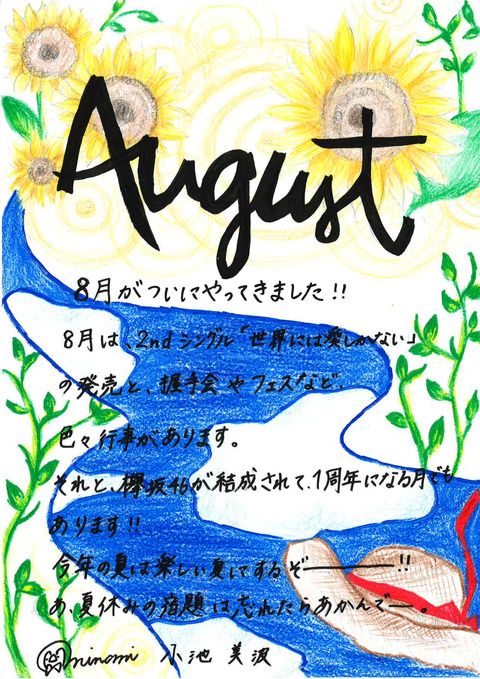 August
8月がついにやってきました!!
8月は、2ndシングル「世界には愛しかない」
の発売と、握手会やフェスなど、
色々行事があります。
それと、欅坂46が結成されて、1周年になる月でも
あります!!
今年の夏は楽しい夏にするぞー!!
あ、夏休みの宿題は忘れたらあかんでー。
minami 小池 美波